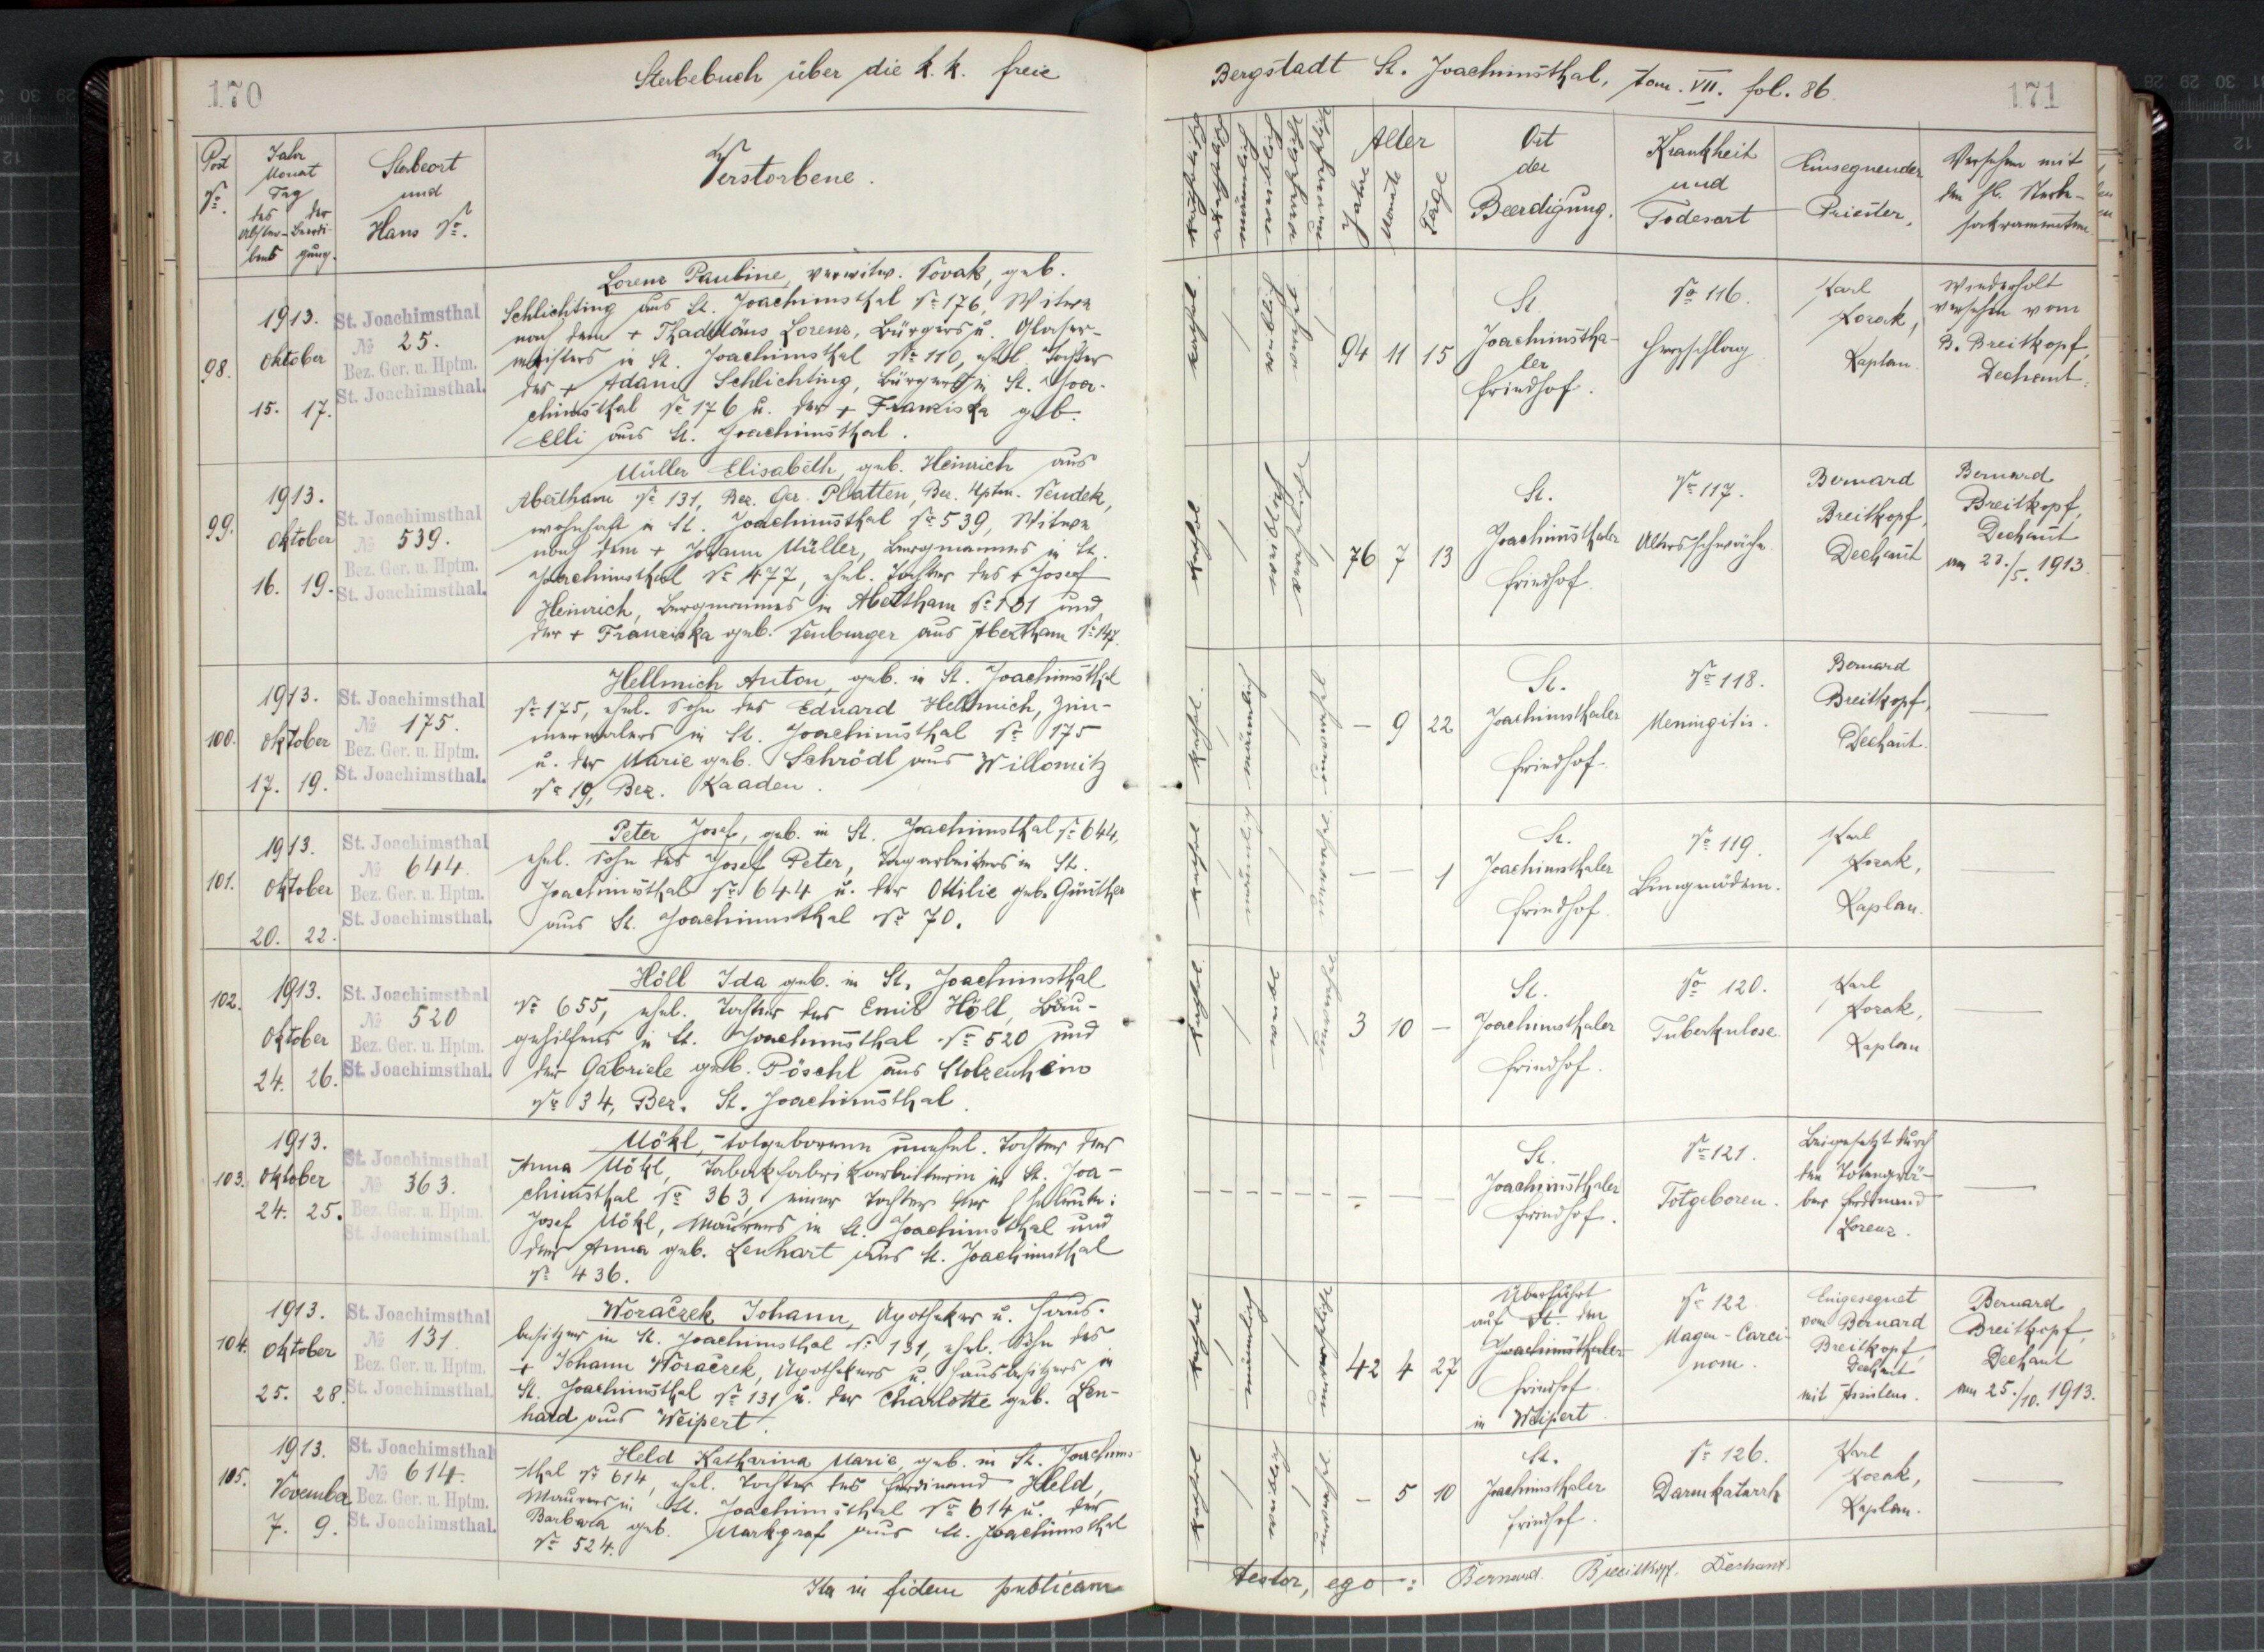 170
Sterbebuch über die k. k. freie
Post
No.
Jahr
Monat
Tag
des der
Abster- Beerdi-
bens gung.
Sterbeort
und
Haus No.
Verstorbene.
98.
1913.
Oktober
15. 17.
St. Joachimsthal
No 25.
Bez. Ger. u. Hptm.
St. Joachimsthal.
Lorenz Pauline, verwitw. Novak, geb.
Schlichting aus St. Joachimsthal No 176, Witwe
nach dem + Thaddäus Lorenz, Bürgers u. Glaser-
meisters in St. Joachimsthal No 110, ehel. Tochter
des + Adam Schlichting, Bürgers in St. Joa-
chimsthal No 176 u. der + Franziska geb.
Elli aus St. Joachimsthal.
99.
1913.
Oktober
16. 19.
St. Joachimsthal
No 539.
Bez. Ger. u. Hptm.
St. Joachimsthal.
Müller Elisabeth, geb. Heinrich aus
Abertham No 131, Bez. Ger. Platten, Bez. Hptm. Neudek,
wohnhaft in St. Joachimsthal No 539, Witwe
nach dem + Johann Müller, Bergmannes in St.
Joachimsthal No 477, ehel. Tochter des + Josef
Heinrich, Bergmannes in Abertham No 131 und
der + Franziska geb. Neuburger aus Abertham No 147.
100.
1913.
Oktober
17. 19.
St. Joachimsthal
No 175.
Bez. Ger. u. Hptm.
St. Joachimsthal.
Hellmich Anton, geb. in St. Joachimsthal
No 175, ehel. Sohn des Eduard Hellmich, Zim-
mermalers in St. Joachimsthal No 175
u. der Marie geb. Schrödl aus Willomitz
No 19, Bez. Kaaden.
101.
1913.
Oktober
20. 22.
St. Joachimsthal
No 644.
Bez. Ger. u. Hptm.
St. Joachimsthal.
Peter Josef, geb. in St. Joachimsthal No 644,
ehel. Sohn des Josef Peter, Tagarbeiters in St.
Joachimsthal No 644 u. der Ottilie geb. Günther
aus St. Joachimsthal No 70.
102.
1913.
Oktober
24. 26.
St. Joachimsthal
No 520
Bez. Ger. u. Hptm.
St. Joachimsthal.
Höll Ida geb. in St. Joachimsthal
No 655, ehel. Tochter des Emil Höll, Bau-
gehilfens in St. Joachimsthal No 520 und
der Gabriele geb. Pöschl aus Stolzenhein
No 34, Bez. St. Joachimsthal.
103.
1913.
Oktober
24. 25.
St. Joachimsthal
No 363.
Bez. Ger. u. Hptm.
St. Joachimsthal.
Mökl, totgeborene unehel. Tochter der
Anna Mökl, Tabakfabrikarbeiterin in St. Joa-
chimsthal No 363, einer Tochter der Eheleute:
Josef Mökl, Maurers in St. Joachimsthal und
der Anna geb. Lenhart aus St. Joachimsthal
No 436.
104.
1913.
Oktober
25. 28.
St. Joachimsthal
No 131
Bez. Ger. u. Hptm.
St. Joachimsthal.
Woraczek Johann, Apotheker u. Haus-
besitzer in St. Joachimsthal No 131, ehel. Sohn des
+ Johann Woraczek, Apothekers u. Hausbesitzers in
St. Joachimsthal No 131 u. der Charlotte geb. Len-
hard aus Weipert.
105.
1913.
November
7. 9.
St. Joachimsthal
No 614.
Bez. Ger. u. Hptm.
St. Joachimsthal.
Held Katharina Marie, geb. in St. Joachims-
thal No 614, ehel. Tochter des Ferdinand Held,
Maurers in St. Joachimsthal No 614 u. der
Barbara geb. Markgraf aus St. Joachimsthal
No 524.
Ita in fidem publicam
Bergstadt St. Joachimsthal, tom. VII. fol. 86.
171
männlich
weiblich
Alter
Jahre
Monate
Tage
Ort
der
Beerdigung.
Krankheit
und
Todesart
Einsegnender
Priester,
Versehen mit
den hl. Sterb-
sakramenten.
kathol.
weiblich
94 11 15
St.
Joachimstha-
ler
Friedhof.
No 116.
Herzschlag
Karl
Kozak,
Kaplan.
Wiederholt
versehen vom
B. Breitkopf,
Dechant.
kathol.
weiblich
76 7 13
St.
Joachimsthaler
Friedhof.
No 117.
Altersschwäche.
Bernard
Breitkopf,
Dechant
Bernard
Breitkopf,
Dechant
am 23./5. 1913.
kathol.
männlich
— 9 22
St.
Joachimsthaler
Friedhof.
No 118.
Meningitis.
Bernard
Breitkopf,
Dechant.
kathol.
männlich
— — 1
St.
Joachimsthaler
Friedhof.
No 119.
Lungenödem.
Karl
Kozak,
Kaplan.
kathol.
3 10 —
St.
Joachimsthaler
Friedhof.
No 120.
Tuberkulose.
Karl
Kozak,
Kaplan
St.
Joachimsthaler
Friedhof.
No 121.
Totgeboren.
Beigesetzt durch
den Totengrä-
ber Ferdinand
Lorenz.
kathol.
männlich
42 4 27
Überführt
auf St. den
Joachimsthaler
Friedhof
in Weipert.
No 122.
Magen-Carci-
nom.
Eingesegnet
vom Bernard
Breitkopf,
Dechant
mit Assistenz.
Bernard
Breitkopf,
Dechant
am 25./10. 1913.
kathol.
weiblich
— 5 10
St.
Joachimsthaler
Friedhof.
No 126.
Darmkatarrh
Karl
Kozak,
Kaplan.
testor, ego: Bernard Breitkopf. Dechant.